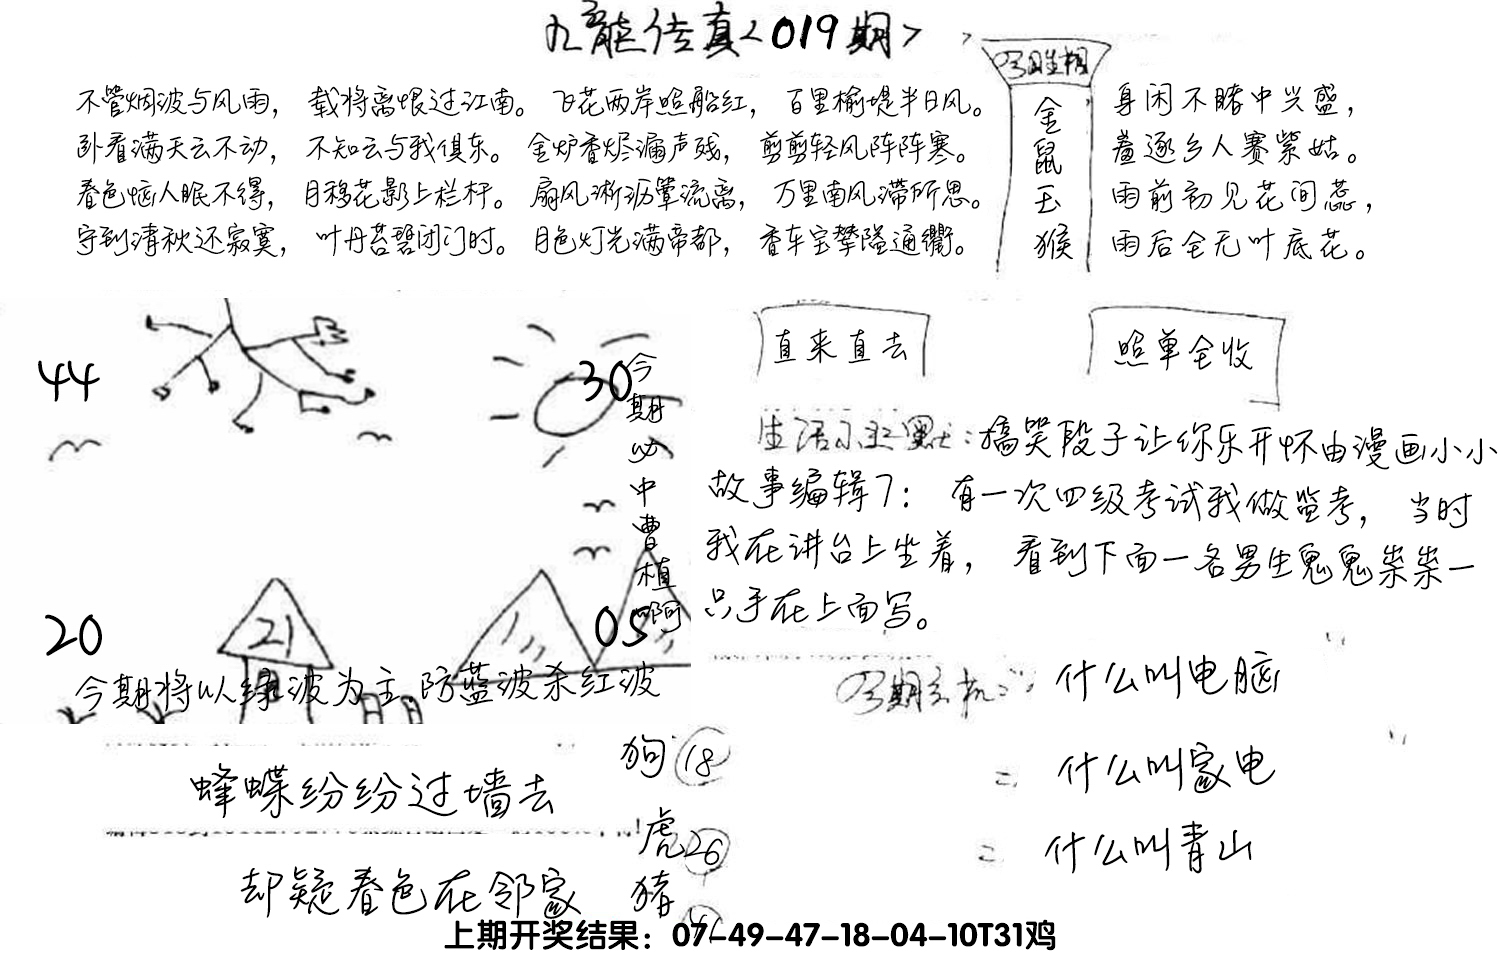 九龙传真<019期>
不管烟波与风雨，载将离恨过江南。飞花两岸照船红，百里榆堤半日风。
卧看满天云不动，不知云与我俱东。金炉香烬漏声残，剪剪轻风阵阵寒。
春色恼人眠不得，月移花影上栏杆。扇风淅沥簟流离，万里南风滞所思。
守到清秋还寂寞，叶丹苔碧闭门时。月色灯光满帝都，香车宝辇隘通衢。
金
鼠
玉
猴
身闲不睹中兴盛，
羞逐乡人赛紫姑。
雨前初见花间蕊，
雨后全无叶底花。
44
30
20
21
05
今期必中曹植啊
今期将以绿波为主防蓝波杀红波
直来直去
照单全收
生活小幽默：搞笑段子让你乐开怀由漫画小小
故事编辑7：有一次四级考试我做监考，当时
我在讲台上坐着，看到下面一各男生鬼鬼祟祟一
只手在上面写。
今期玄机：什么叫电脑
= 什么叫家电
= 什么叫青山
蜂蝶纷纷过墙去
却疑春色在邻家
狗 18
虎 26
猪
上期开奖结果：07-49-47-18-04-10T31鸡